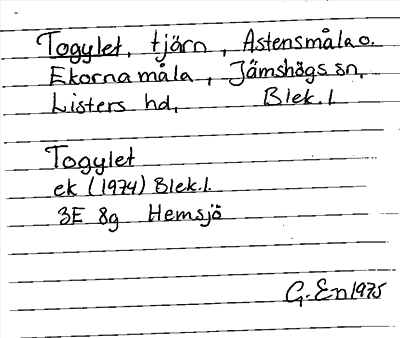 Togylet, tjärn, Astensmåla o.
Ekornamåla, Jämshögs sn,
Listers hd, Blek. l
Togylet
ek (1974) Blek. l.
3E 8g Hemsjö
G. En 1975